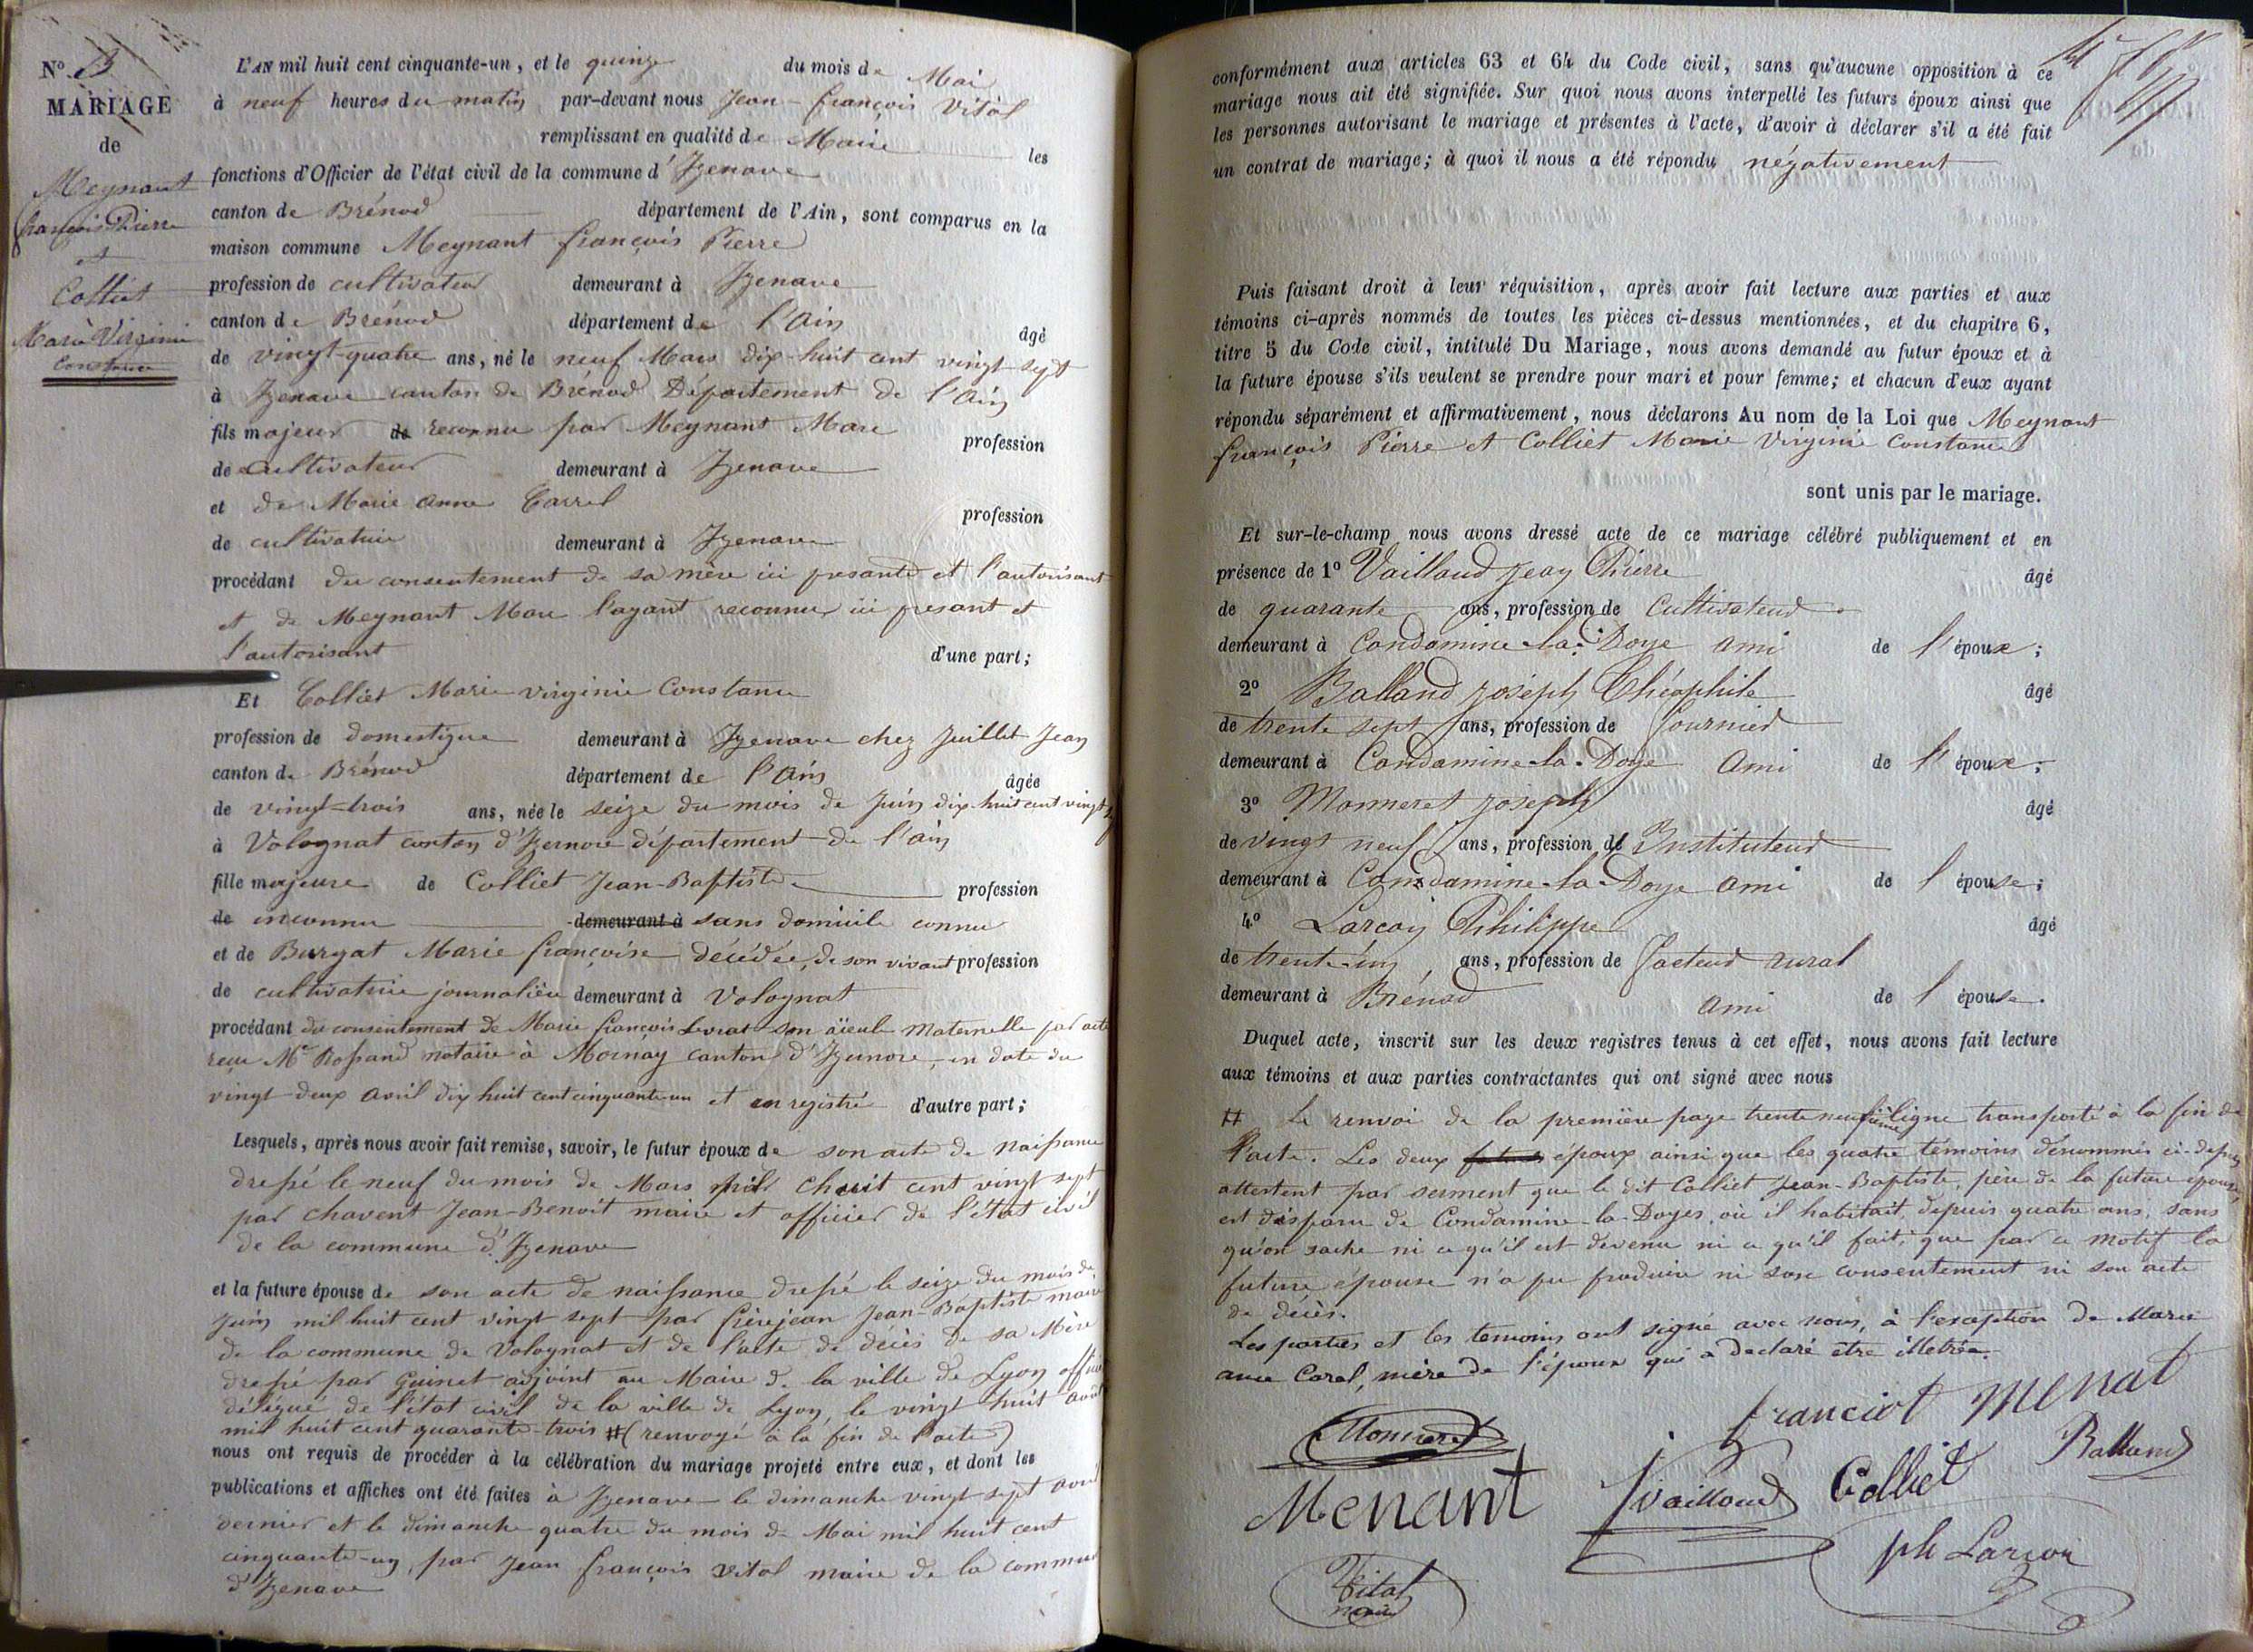 N.° 3
MARIAGE
de
Meynant
françois Pierre
et
Colliet
Marie Virginie
Constance
L'AN mil huit cent cinquante-un, et le quinze du mois de Mai
à neuf heures du matin par-devant nous Jean-françois Vital
remplissant en qualité de Maire les
fonctions d'Officier de l'état civil de la commune d'Izenave
canton de Brénod département de l'Ain, sont comparus en la
maison commune Meynant françois Pierre
profession de cultivateur demeurant à Izenave
canton de Brénod département de l'Ain âgé
de vingt-quatre ans, né le neuf Mars dix-huit cent vingt-sept
à Izenave canton de Brénod Département de l'Ain
fils majeur de reconnu par Meynant Marc profession
de cultivateur demeurant à Izenave
et de Marie anne Carrel profession
de cultivatrice demeurant à Izenave
procédant du consentement de sa mère ici presante et l'autorisant
et de Meynant Marc l'ayant reconnu ici presant et
l'autorisant d'une part;
Et Colliet Marie virginie Constance
profession de domestique demeurant à Izenave chez Juillet Jean
canton de Brénod département de l'Ain âgée
de vingt-trois ans, née le seize du mois de Juin dix-huit cent vingt
à Volognat canton d'Izernore département de l'ain
fille majeure de Colliet Jean-Baptiste profession
de inconnu demeurant à sans domicile connu
et de Burgat Marie françoise décédée, de son vivant profession
de cultivatrice journalière demeurant à Volognat
procédant du consentement de Marie françois Levrat son aïeule maternelle par acte
reçu Me Rossand notaire à Mornay canton d'Izernore, en date du
vingt deux avril dix huit cent cinquante-un et enregistré d'autre part;
Lesquels, après nous avoir fait remise, savoir, le futur époux de son acte de naissance
dressé le neuf du mois de Mars mil huit cent vingt sept
par chavent Jean-Benoit maire et officier de l'état civil
de la commune d'Izenave
et la future épouse de son acte de naissance dressé le seize du mois de
juin mil huit cent vingt sept par frèrejean Jean-Baptiste maire
de la commune de Volognat et de l'acte de décès de sa Mère
dressé par Guinet adjoint au Maire de la ville de Lyon officier
délégué de l'état civil de la ville de Lyon, le vingt huit août
mil huit cent quarante-trois # (renvoyé à la fin de l'acte)
nous ont requis de procéder à la célébration du mariage projeté entre eux, et dont les
publications et affiches ont été faites à Izenave le dimanche vingt sept avril
dernier et le dimanche quatre du mois de Mai mil huit cent
cinquante-un, par Jean françois Vital maire de la commune
d'Izenave
conformément aux articles 63 et 64 du Code civil, sans qu'aucune opposition à ce
mariage nous ait été signifiée. Sur quoi nous avons interpellé les futurs époux ainsi que
les personnes autorisant le mariage et présentes à l'acte, d'avoir à déclarer s'il a été fait
un contrat de mariage; à quoi il nous a été répondu négativement
Puis faisant droit à leur réquisition, après avoir fait lecture aux parties et aux
témoins ci-après nommés de toutes les pièces ci-dessus mentionnées, et du chapitre 6,
titre 5 du Code civil, intitulé Du Mariage, nous avons demandé au futur époux et à
la future épouse s'ils veulent se prendre pour mari et pour femme; et chacun d'eux ayant
répondu séparément et affirmativement, nous déclarons Au nom de la Loi que Meynant
françois Pierre et Colliet Marie Virginie Constance
sont unis par le mariage.
Et sur-le-champ nous avons dressé acte de ce mariage célébré publiquement et en
présence de 1° Vailloud Jean Pierre âgé
de quarante ans, profession de Cultivateur
demeurant à Condamine-la-Doye ami de l'époux;
2° Balland Joseph Théophile âgé
de trente sept ans, profession de fournier
demeurant à Condamine-la-Doye Ami de l'époux;
3° Monneret Joseph âgé
de vingt neuf ans, profession de Instituteur
demeurant à Condamine-la-Doye ami de l'épouse;
4° Larcon Philippe âgé
de trente-un ans, profession de facteur rural
demeurant à Brénod ami de l'épouse.
Duquel acte, inscrit sur les deux registres tenus à cet effet, nous avons fait lecture
aux témoins et aux parties contractantes qui ont signé avec nous
# Le renvoi de la première page trente neufième ligne transporté à la fin de
l'acte. Les deux futurs époux ainsi que les quatre témoins dénommés ci-dessus
attestent par serment que le dit Colliet Jean-Baptiste, père de la future épouse,
est disparu de Condamine-la-Doyes, où il habitait depuis quatre ans, sans
qu'on sache ni ce qu'il est devenu ni ce qu'il fait; que par ce motif la
future épouse n'a pu produire ni son consentement ni son acte
de décès.
Les parties et les temoins ont signé avec nous, à l'exception de Marie
anne Carel, mère de l'époux qui a declaré être illetrée.
franciot Menat
Monneret
Balland
Menant
Vailloud
Colliet
ph Larcon
Vital
maire